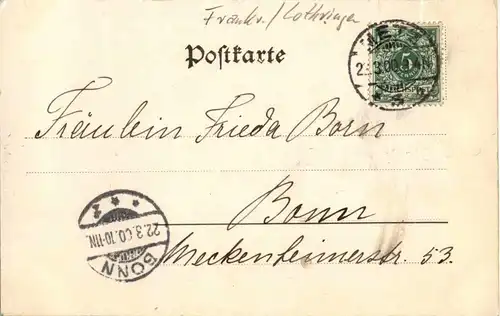 Frankr./Lothringen
METZ
Postkarte
5
Fräulein Frieda Born
Bonn
Meckenheimerstr. 53.
22.3.00.10-11N.
BONN